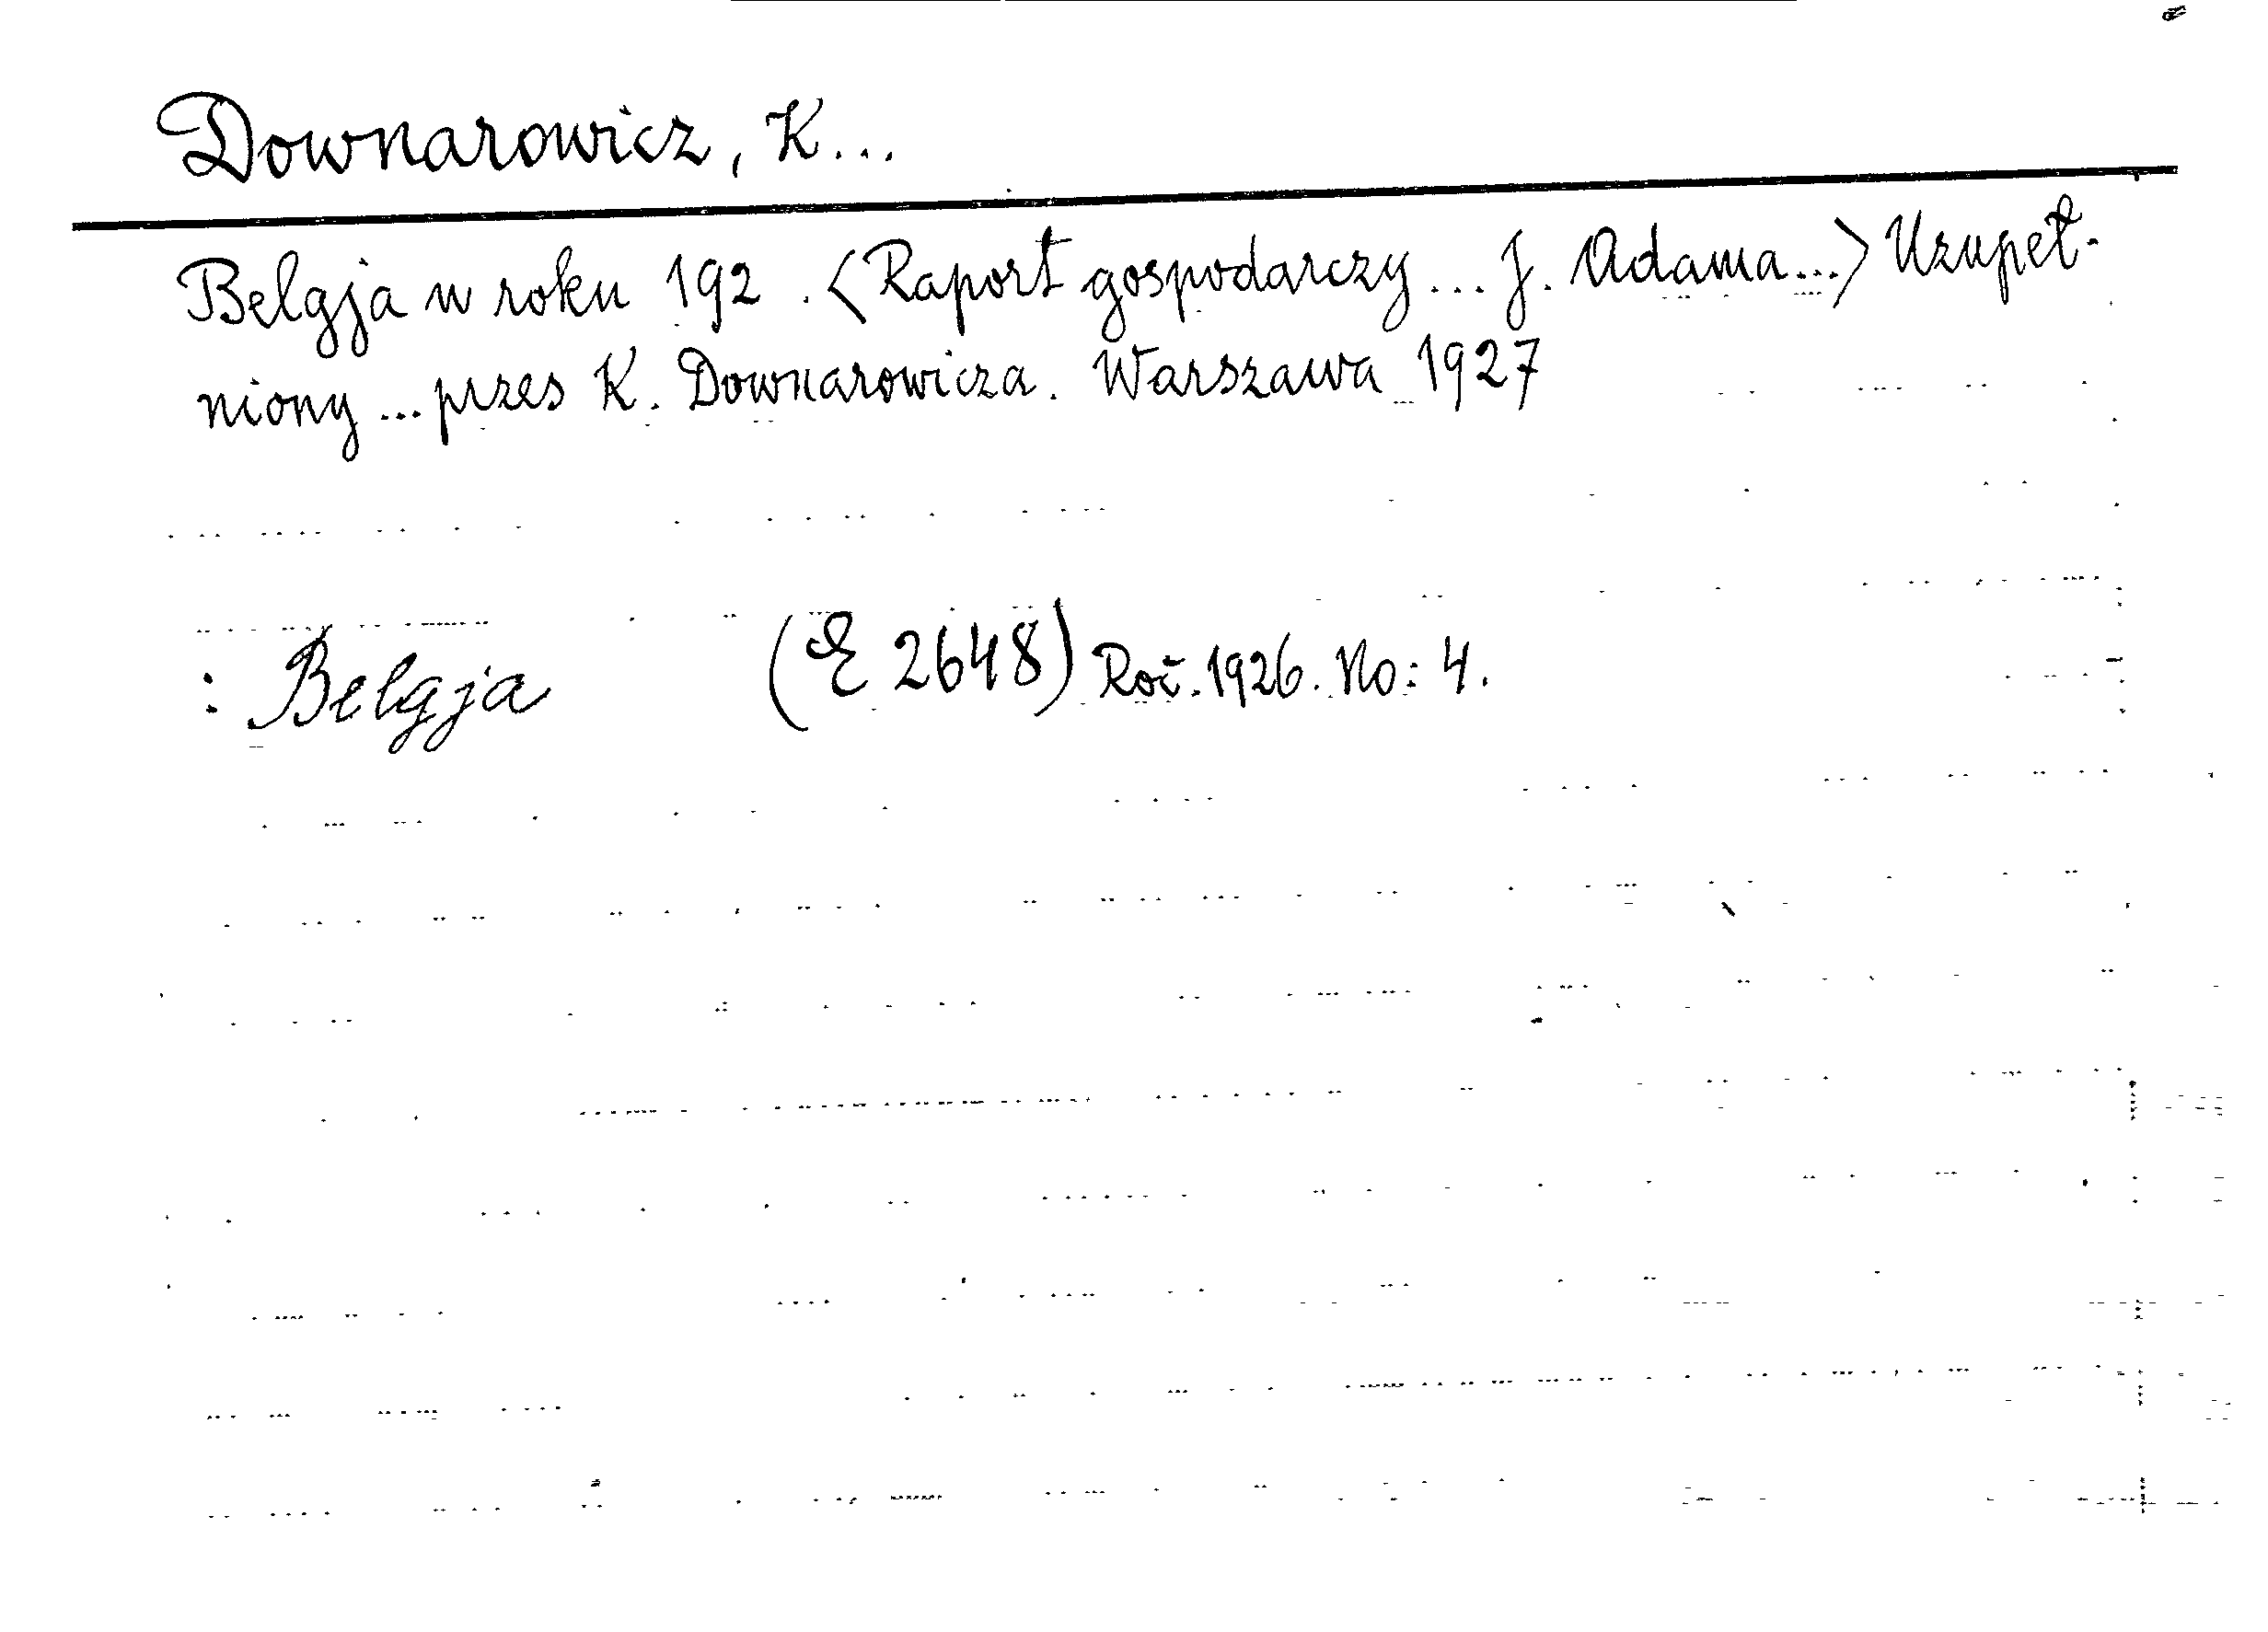 Downarowicz, K...
Belgja w roku 192 . <Raport gospodarczy... J. Adama...> Uzupeł-
niony ... przes K. Downarowicza. Warszawa 1927
: Belgja (E 2648) Roč. 1926. No: 4.